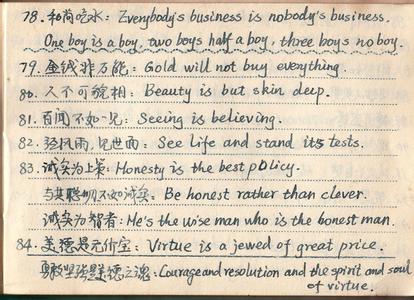 78. 和尚吃水: Everybody's business is nobody's business.
One boy is a boy, two boys half a boy, three boys no boy.
79. 金钱非万能: Gold will not buy everything.
80. 人不可貌相: Beauty is but skin deep.
81. 百闻不如一见: Seeing is believing.
82. 经风雨,见世面: See life and stand its tests.
83. 诚实为上策: Honesty is the best policy.
与其聪明不如诚实: Be honest rather than clever.
诚实为智者: He's the wise man who is the honest man.
84. 美德是无价宝: Virtue is a jewed of great price.
勇敢坚强是美德之魂: Courage and resolution and the spirit and soul
of virtue.